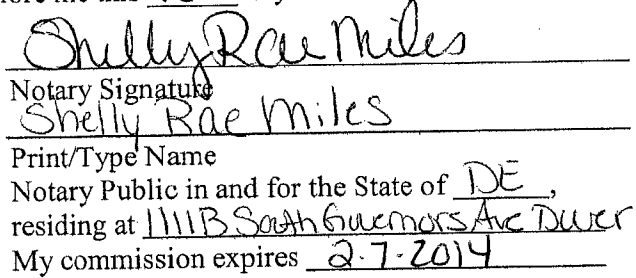 Shelly Rae Miles
Notary Signature
Shelly Rae Miles
Print/Type Name
Notary Public in and for the State of DE,
residing at 1111B South Governors Ave Dover
My commission expires 2-7-2014